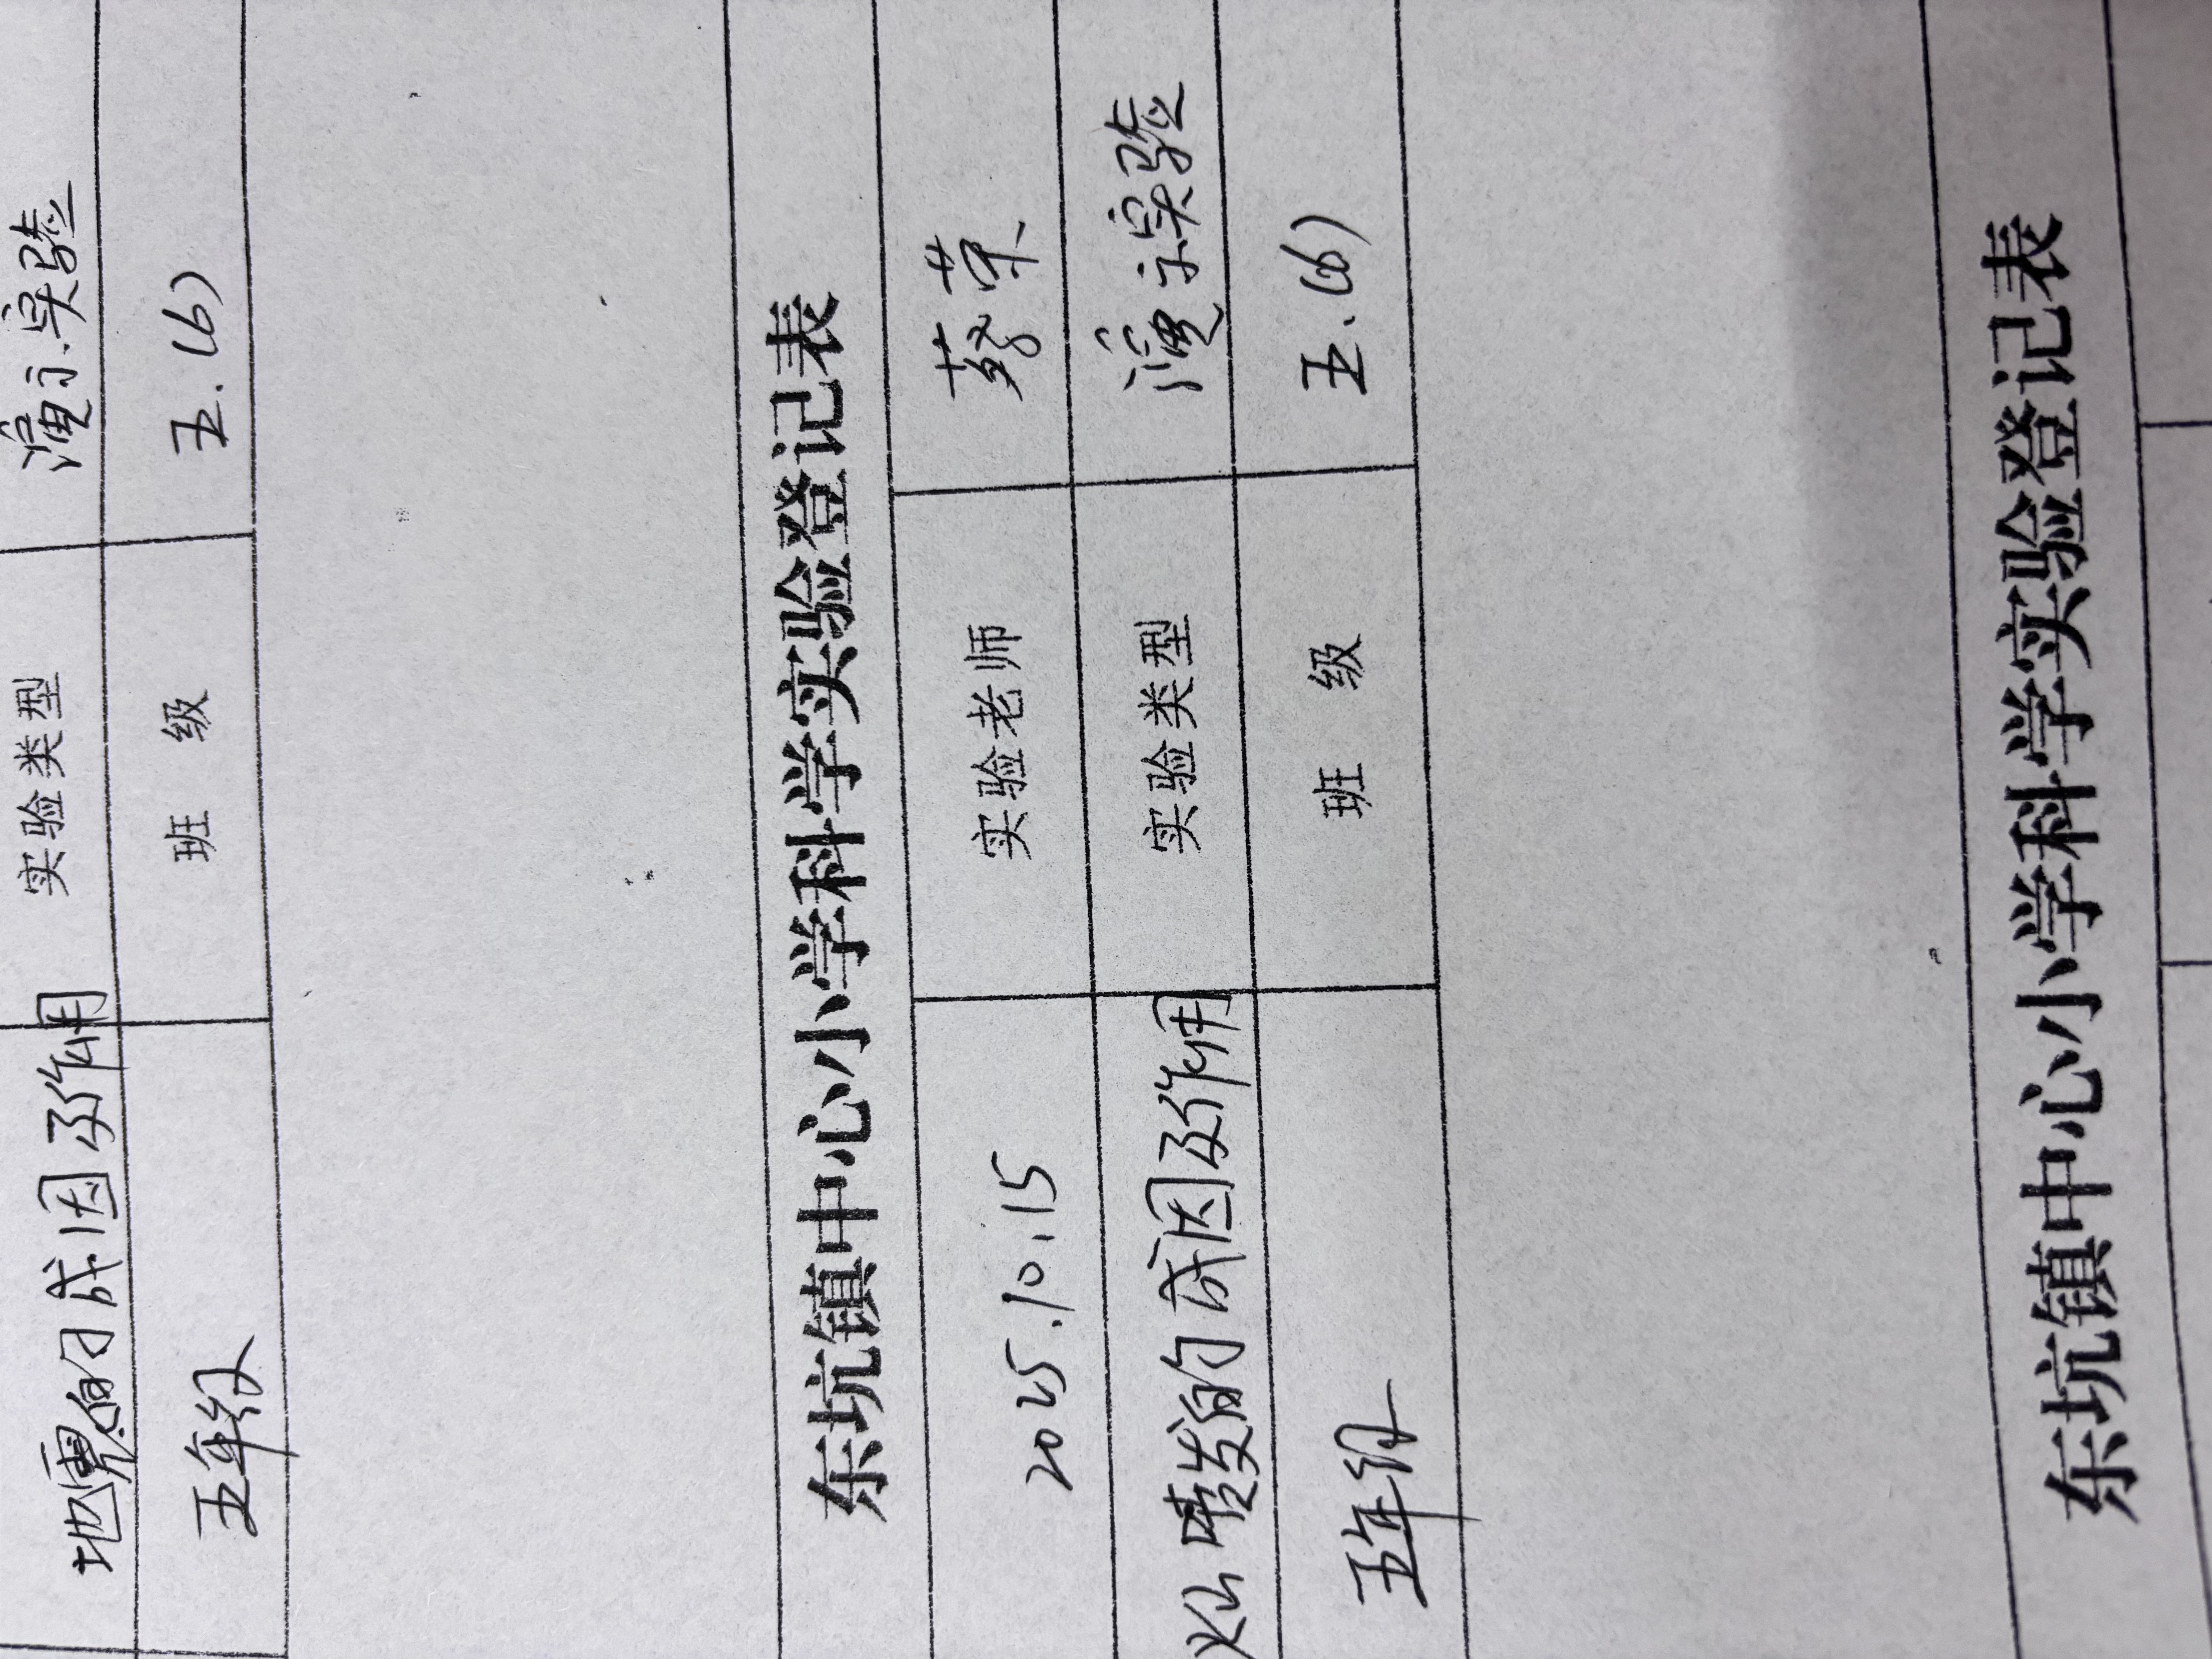 地震的成因及作用 实验类型 演示实验
五年级 班 级 五.(6)
东坑镇中心小学科学实验登记表
2025.10.15 实验老师 蔡荣
火山喷发的成因及作用 实验类型 演示实验
五年级 班 级 五.(6)
东坑镇中心小学科学实验登记表